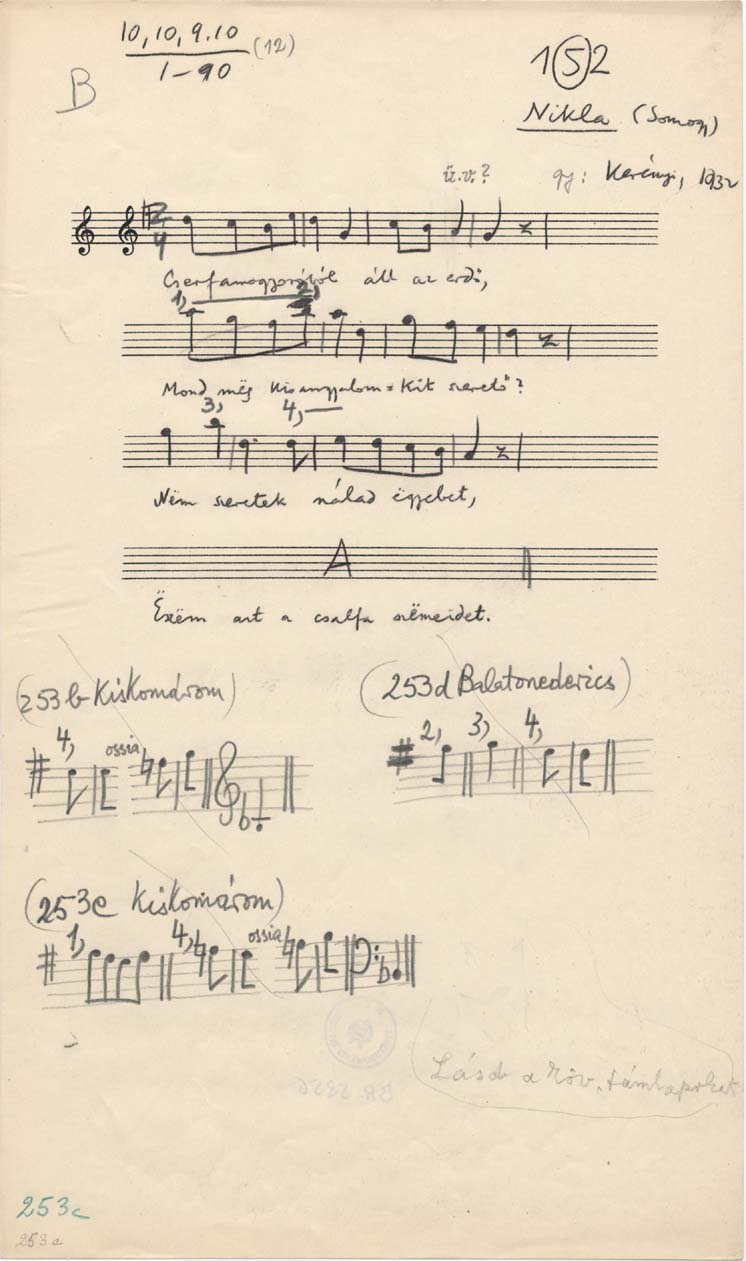 10, 10, 9.10 (12)
1–90
B
1(5)2
Nikla (Somogy)
ü.v.? gy: Kerényi, 1932
2
4
Cserfamogyoróból áll az erdő,
1, 2,
Mond még kisangyalom = Kit szerető?
3, 4,
Nëm szeretek nálad ëgyebet,
A
Ëzëm azt a csalfa szëmeidet.
(253b Kiskomárom)
4, ossia
(253d Balatonederics)
2, 3, 4,
(253e Kiskomárom)
1, 4, ossia
Lásd a röv. támlapokat
253c